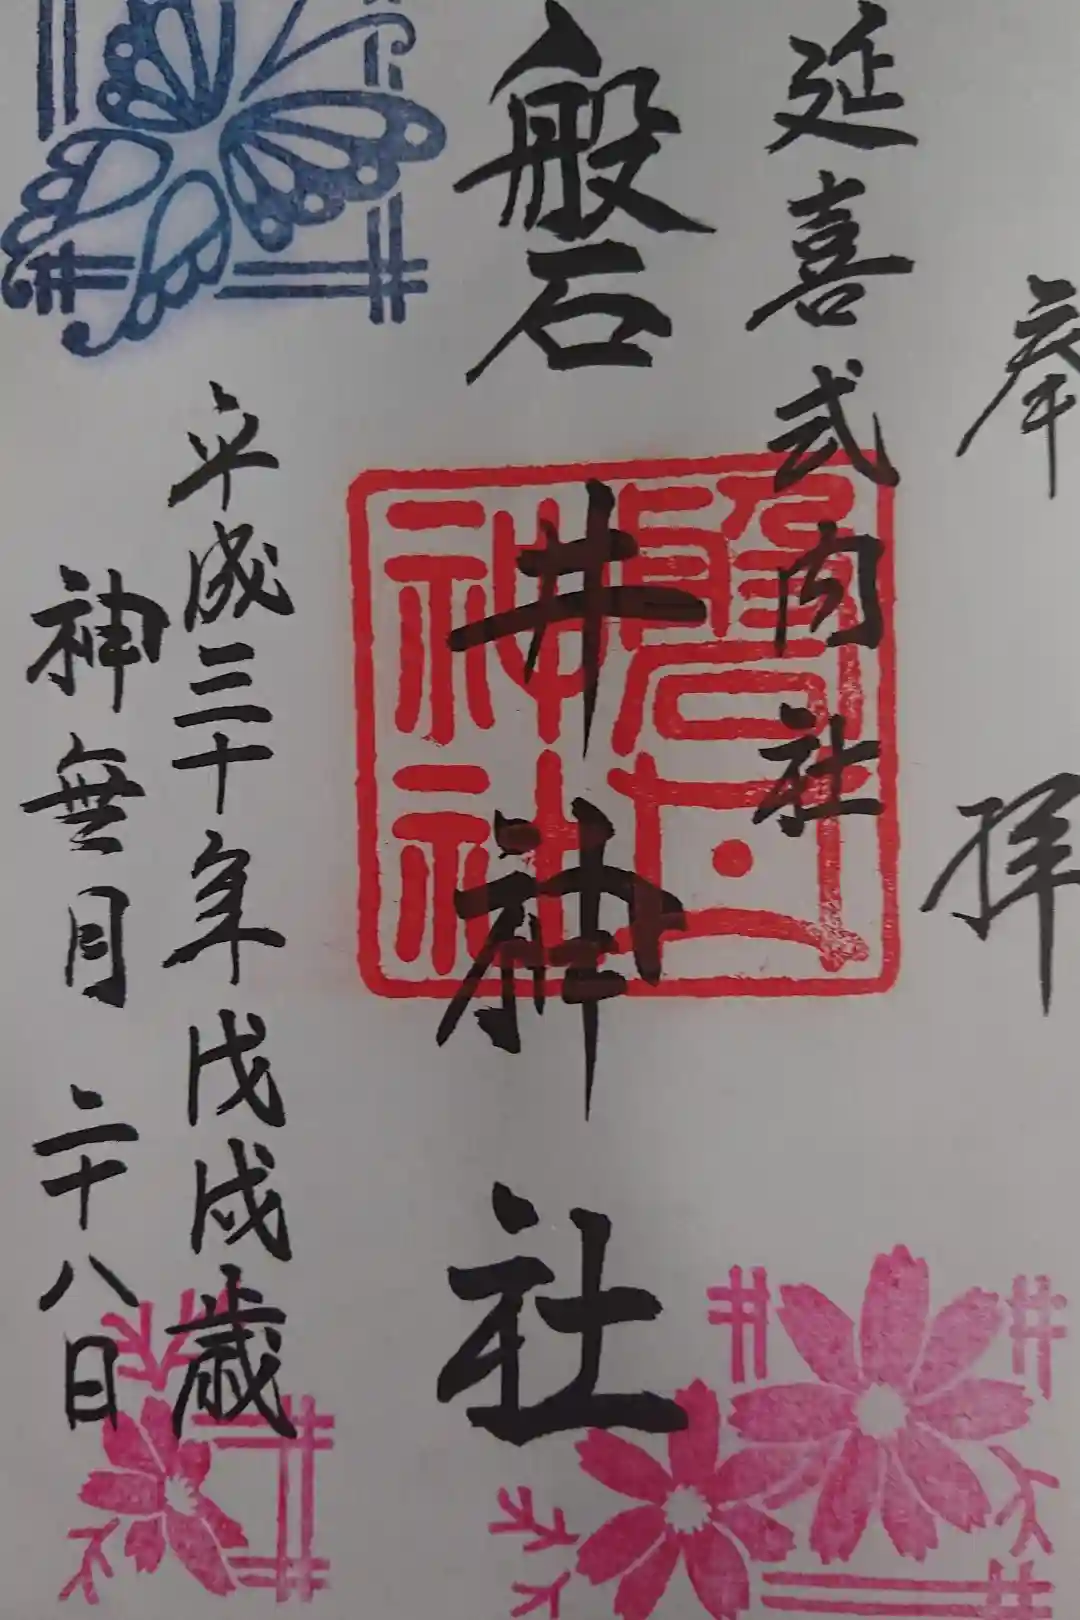 奉拝
延喜式内社
磐井神社
磐井
神社
平成三十年戊戌歳
神無月二十八日